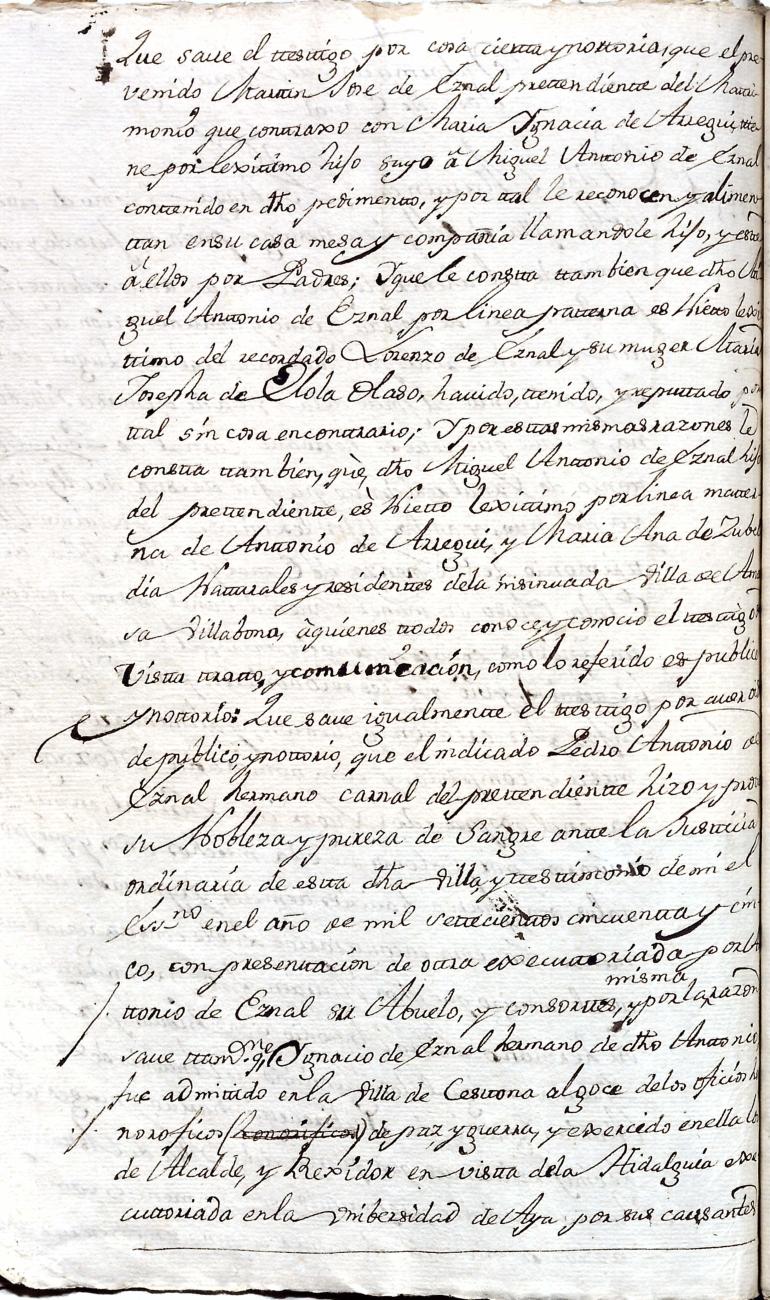 Que save el ttesttigo por cosa ciertta y nottoria, que el pre-
venido Marttin Jose de Eznal prettendientte del Mattri-
monio que conttraxo con Maria Ygnacia de Arregui, ttie-
ne por lexittimo hijo suyo â Miguel Anttonio de Eznal
conttenido en dho pedimentto, y por ttal le reconocen y alimen-
ttan en su casa mesa y compañia llamandole hijo, y estte
â ellos por Padres; Y que le constta ttambien que dho Mi-
guel Anttonio de Eznal por linea patterna es Nietto lexi-
ttimo del recordado Lorenzo de Eznal y su muger Maria
Josepha de Elola Olaso, havido, ttenido, y reputtado por
ttal sin cosa en conttrario; Y por esttas mismas razones le
constta ttambien, que, dho Miguel Anttonio de Eznal hijo
del prettendientte, ès Nietto lexittimo por linea matter-
na de Anttonio de Arregui, y Maria Ana de Zubel
dia Natturales y residenttes de la insinuada Villa de Ama
sa Villabona, â quienes ttodos conoce, y conocio el ttesttigo de
Vistta tratto, y comunicación, como lo referido es publico
y nottorio: Que save igualmentte el ttesttigo por aver oido
de publico, y nottorio, que el indicado Pedro Anttonio de
Eznal hermano carnal del prettendientte hizo y provo
su Nobleza y pureza de Sangre antte la Justticia
ordinaria de estta dha Villa, y ttesttimonio de mi el
Essno en el año de mil settecienttos cincuentta y cin-
co, con presenttacion de ottra executtoriada por An
misma
ttonio de Eznal su Abuelo, y consorttes, y por la razon
save ttambn qe, Ygnacio de Eznal hermano de dho Anttonio,
fue admittido en la Villa de Cesttona al goce de los oficios ho
norosficos (honorificos) de paz, y guerra, y exercido en ella los
de Alcalde, y Rexidor en vistta de la Hidalguia exe
cuttoriada en la Vnibersidad de Aya por sus causanttes